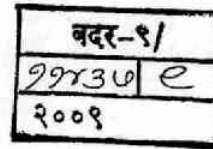 बदर-९/
११४३७ ९
२००९